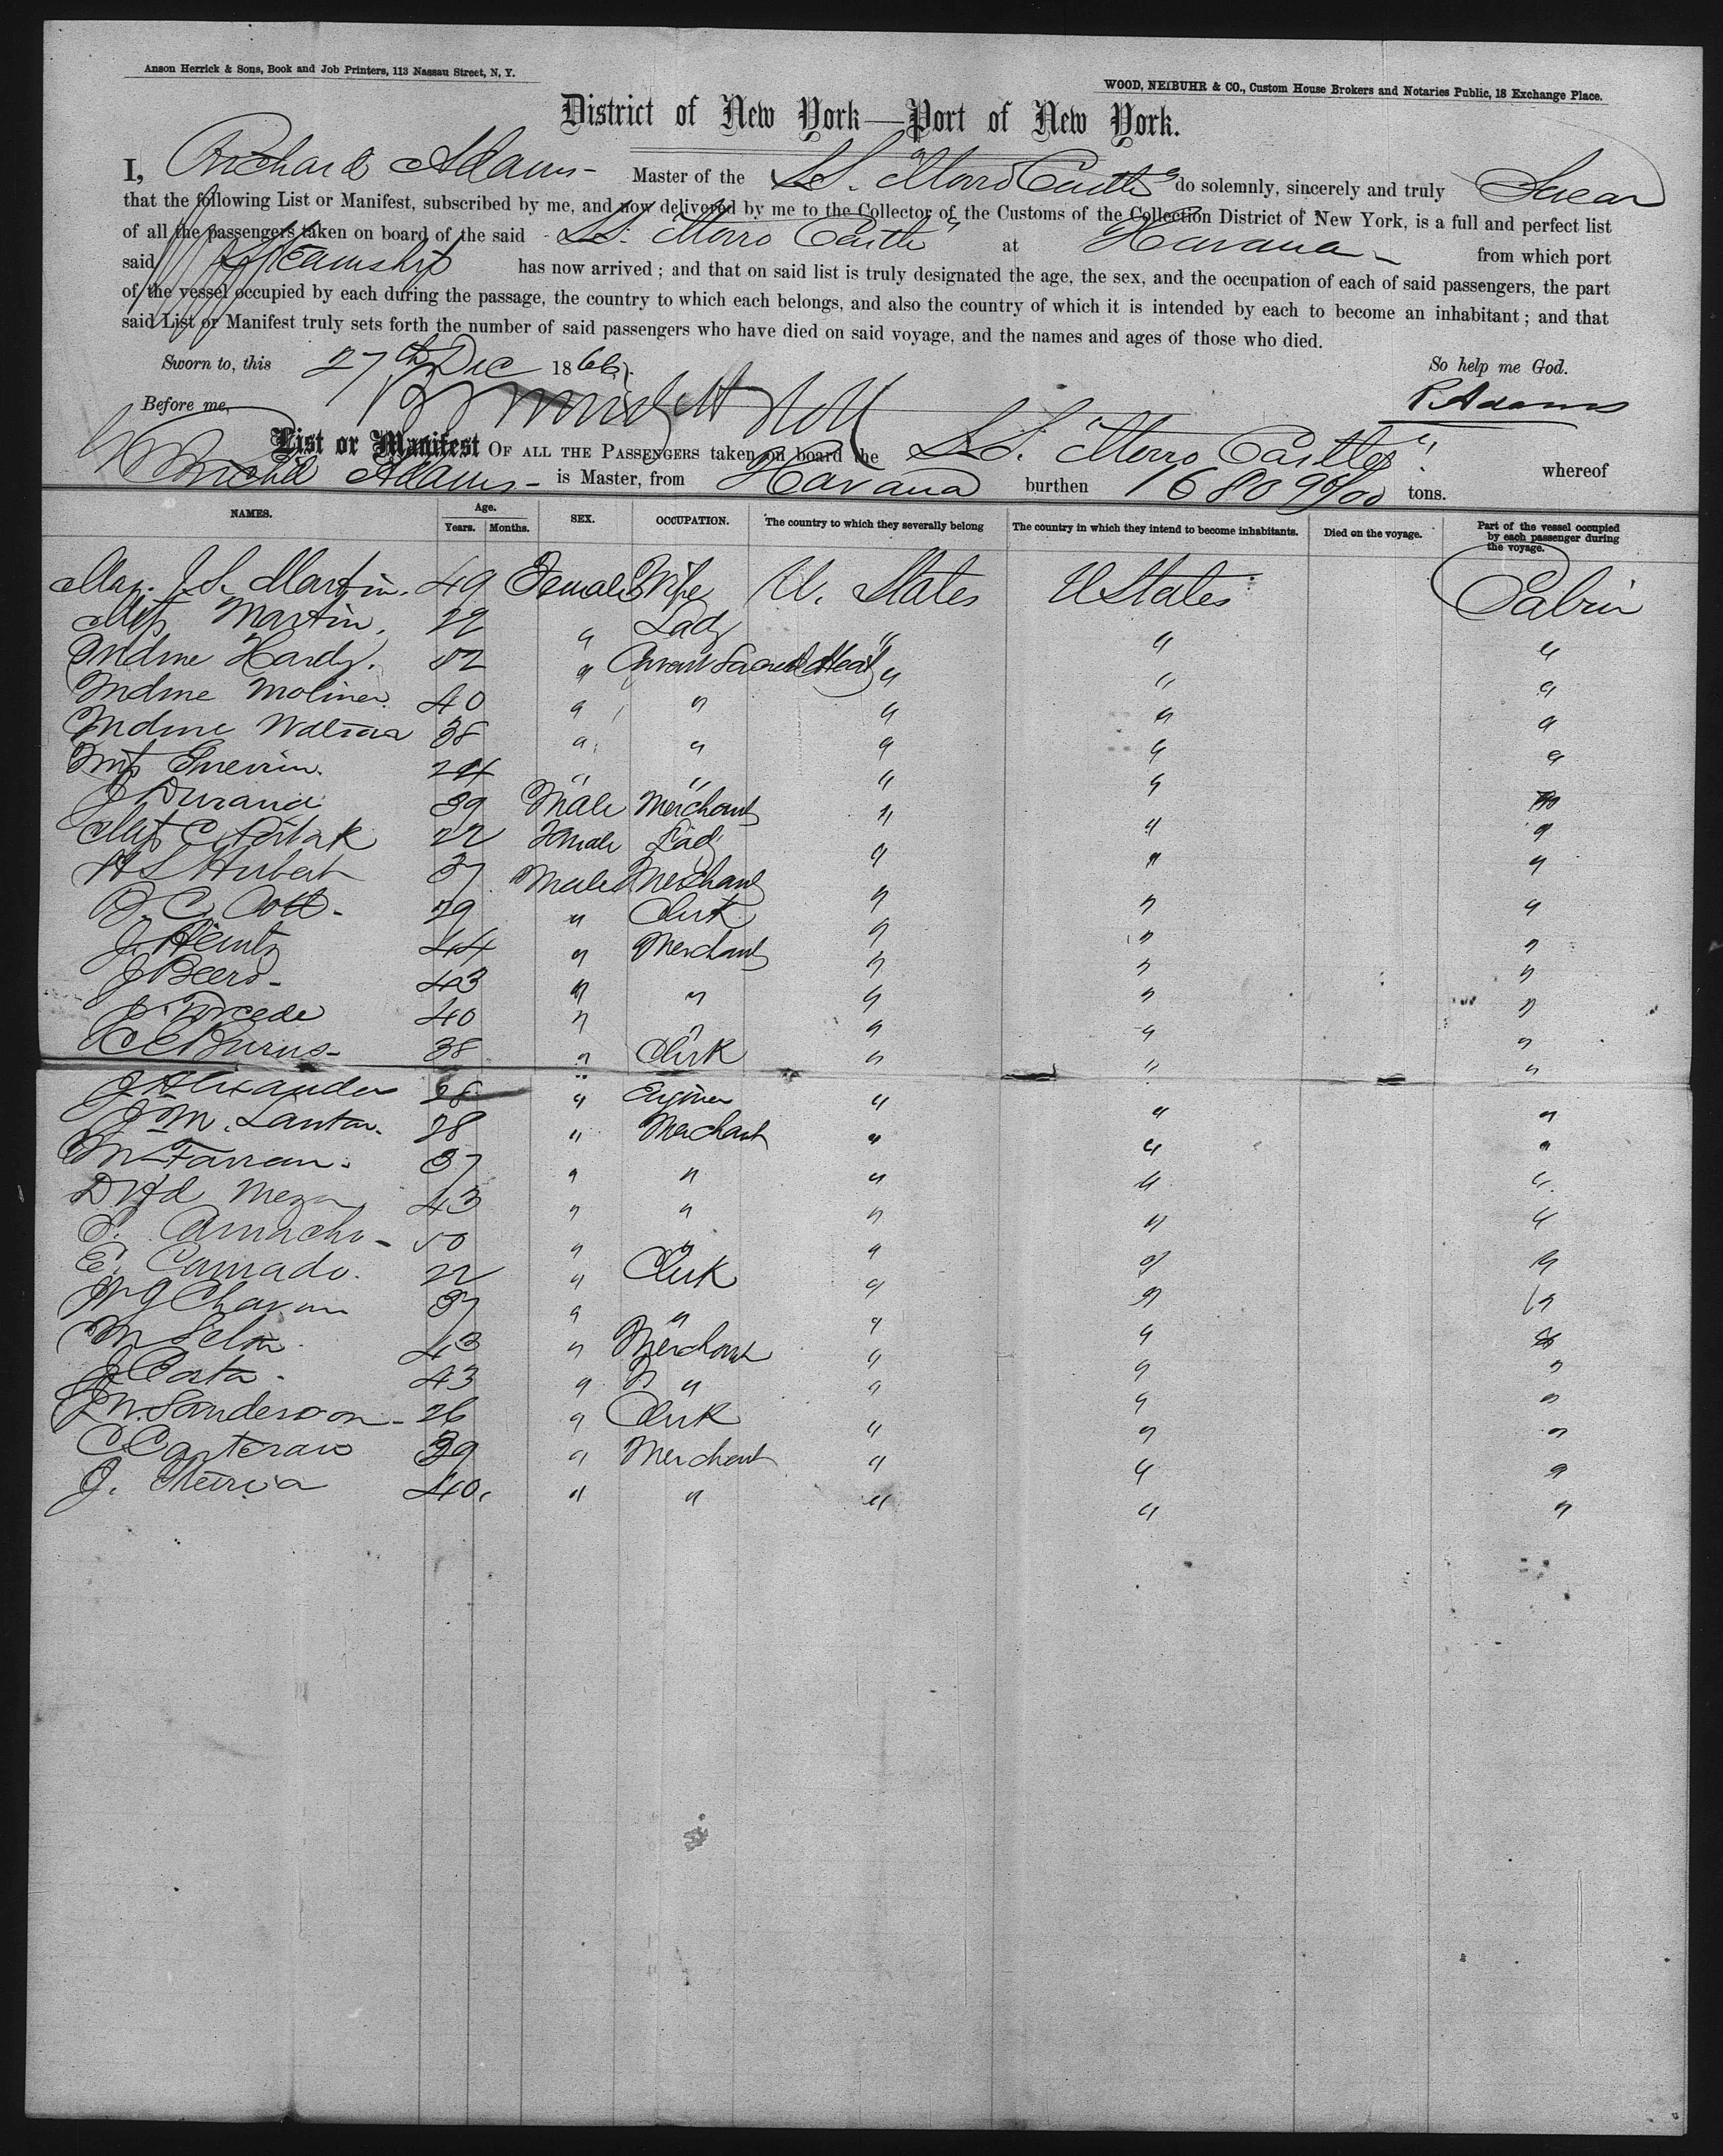 Anson Herrick & Sons, Book and Job Printers, 113 Nassau Street, N. Y.
WOOD, NEIBUHR & CO., Custom House Brokers and Notaries Public, 18 Exchange Place.
District of New York—Port of New York.
I, Richard Adams - Master of the S.S. "Morro Castle" do solemnly, sincerely and truly Swear
that the following List or Manifest, subscribed by me, and now delivered by me to the Collector of the Customs of the Collection District of New York, is a full and perfect list
of all the passengers taken on board of the said S.S. Morro Castle" at Havana - from which port
said Steamship has now arrived; and that on said list is truly designated the age, the sex, and the occupation of each of said passengers, the part
of the vessel occupied by each during the passage, the country to which each belongs, and also the country of which it is intended by each to become an inhabitant; and that
said List or Manifest truly sets forth the number of said passengers who have died on said voyage, and the names and ages of those who died.
Sworn to, this 27th Dec 1866. So help me God.
Before me, R Adams
List or Manifest OF ALL THE PASSENGERS taken on board the S.S. "Morro Castle" whereof
Adams - is Master, from Havana burthen 1680 9/100 tons.
NAMES. Age. Years. Months. SEX. OCCUPATION. The country to which they severally belong The country in which they intend to become inhabitants. Died on the voyage. Part of the vessel occupied by each passenger during the voyage.
J. S. Martin. 49 Female Wife U. States U States Cabin
Miss Martin. 22 " Lady " " "
Mdme Hardy. 42 " Sacred Heart " " "
Mdme Moliner 40 " " " " "
Mdme 38 " " " " "
Miss 24 " " " " "
J Durand 39 Male Merchant " " "
Miss C 22 Female Lady " " "
H S Hubert 37 Male Merchant " " "
B. C. 29 " Clerk " " "
J. Heintz 44 " Merchant " " "
J Beers - 43 " " " " "
J 40 " " " " "
C C Burns - 38 " Clerk " " "
J Alexander 38 " Engineer " " "
J M. 28 " Merchant " " "
M Farran. 37 " " " " "
Meza 43 " " " " "
S. Camacho - 50 " " " " "
E. Camado. 22 " Clerk " " "
37 " " " " "
M 43 " Merchant " " "
J Cata. 43 " " " " "
J W. Sanderson - 26 " Clerk " " "
C 39 " Merchant " " "
J. 40. " " " " "